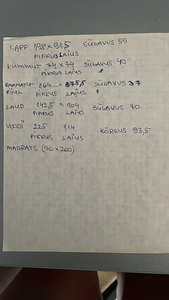 KAPP 198 × 91,5 SÜGAVUS 59
PIKKUS LAIUS
KUMMUT 74 × 74 SÜGAVUS 40
PIKKUS LAIUS
RAAMATU- 264 × 75,5 SÜGAVUS 37
RIIUL PIKKUS LAIUS
LAUD 142,5 × 104 SÜGAVUS 70
PIKKUS LAIUS
VOODI 225 114 KÕRGUS 93,5
PIKKUS LAIUS
MADRATS (90×200)